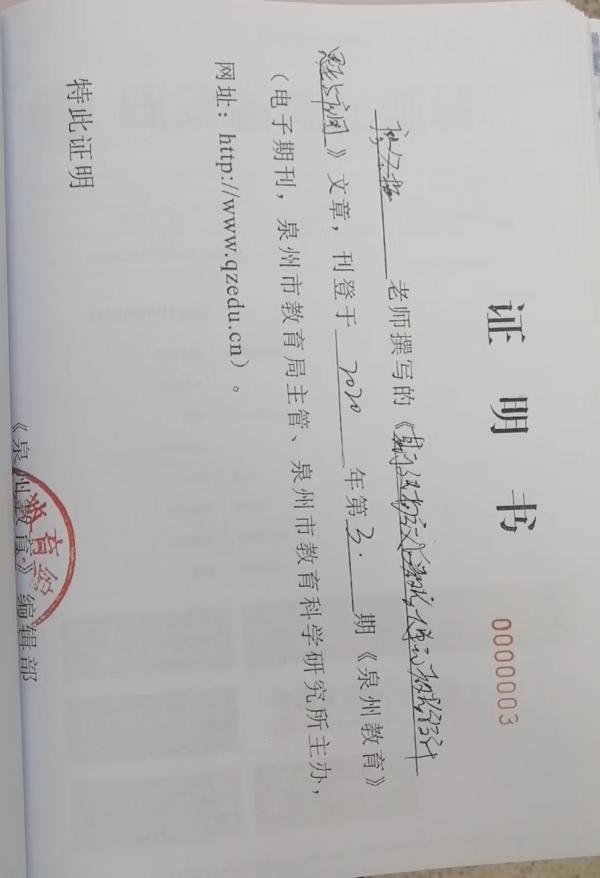 证明书
0000003
老师撰写的《
》文章，刊登于 2020 年第 3. 期《泉州教育》
（电子期刊，泉州市教育局主管、泉州市教育科学研究所主办，
网址：http://www.qzedu.cn）。
特此证明
《泉州教育》编辑部
教育编